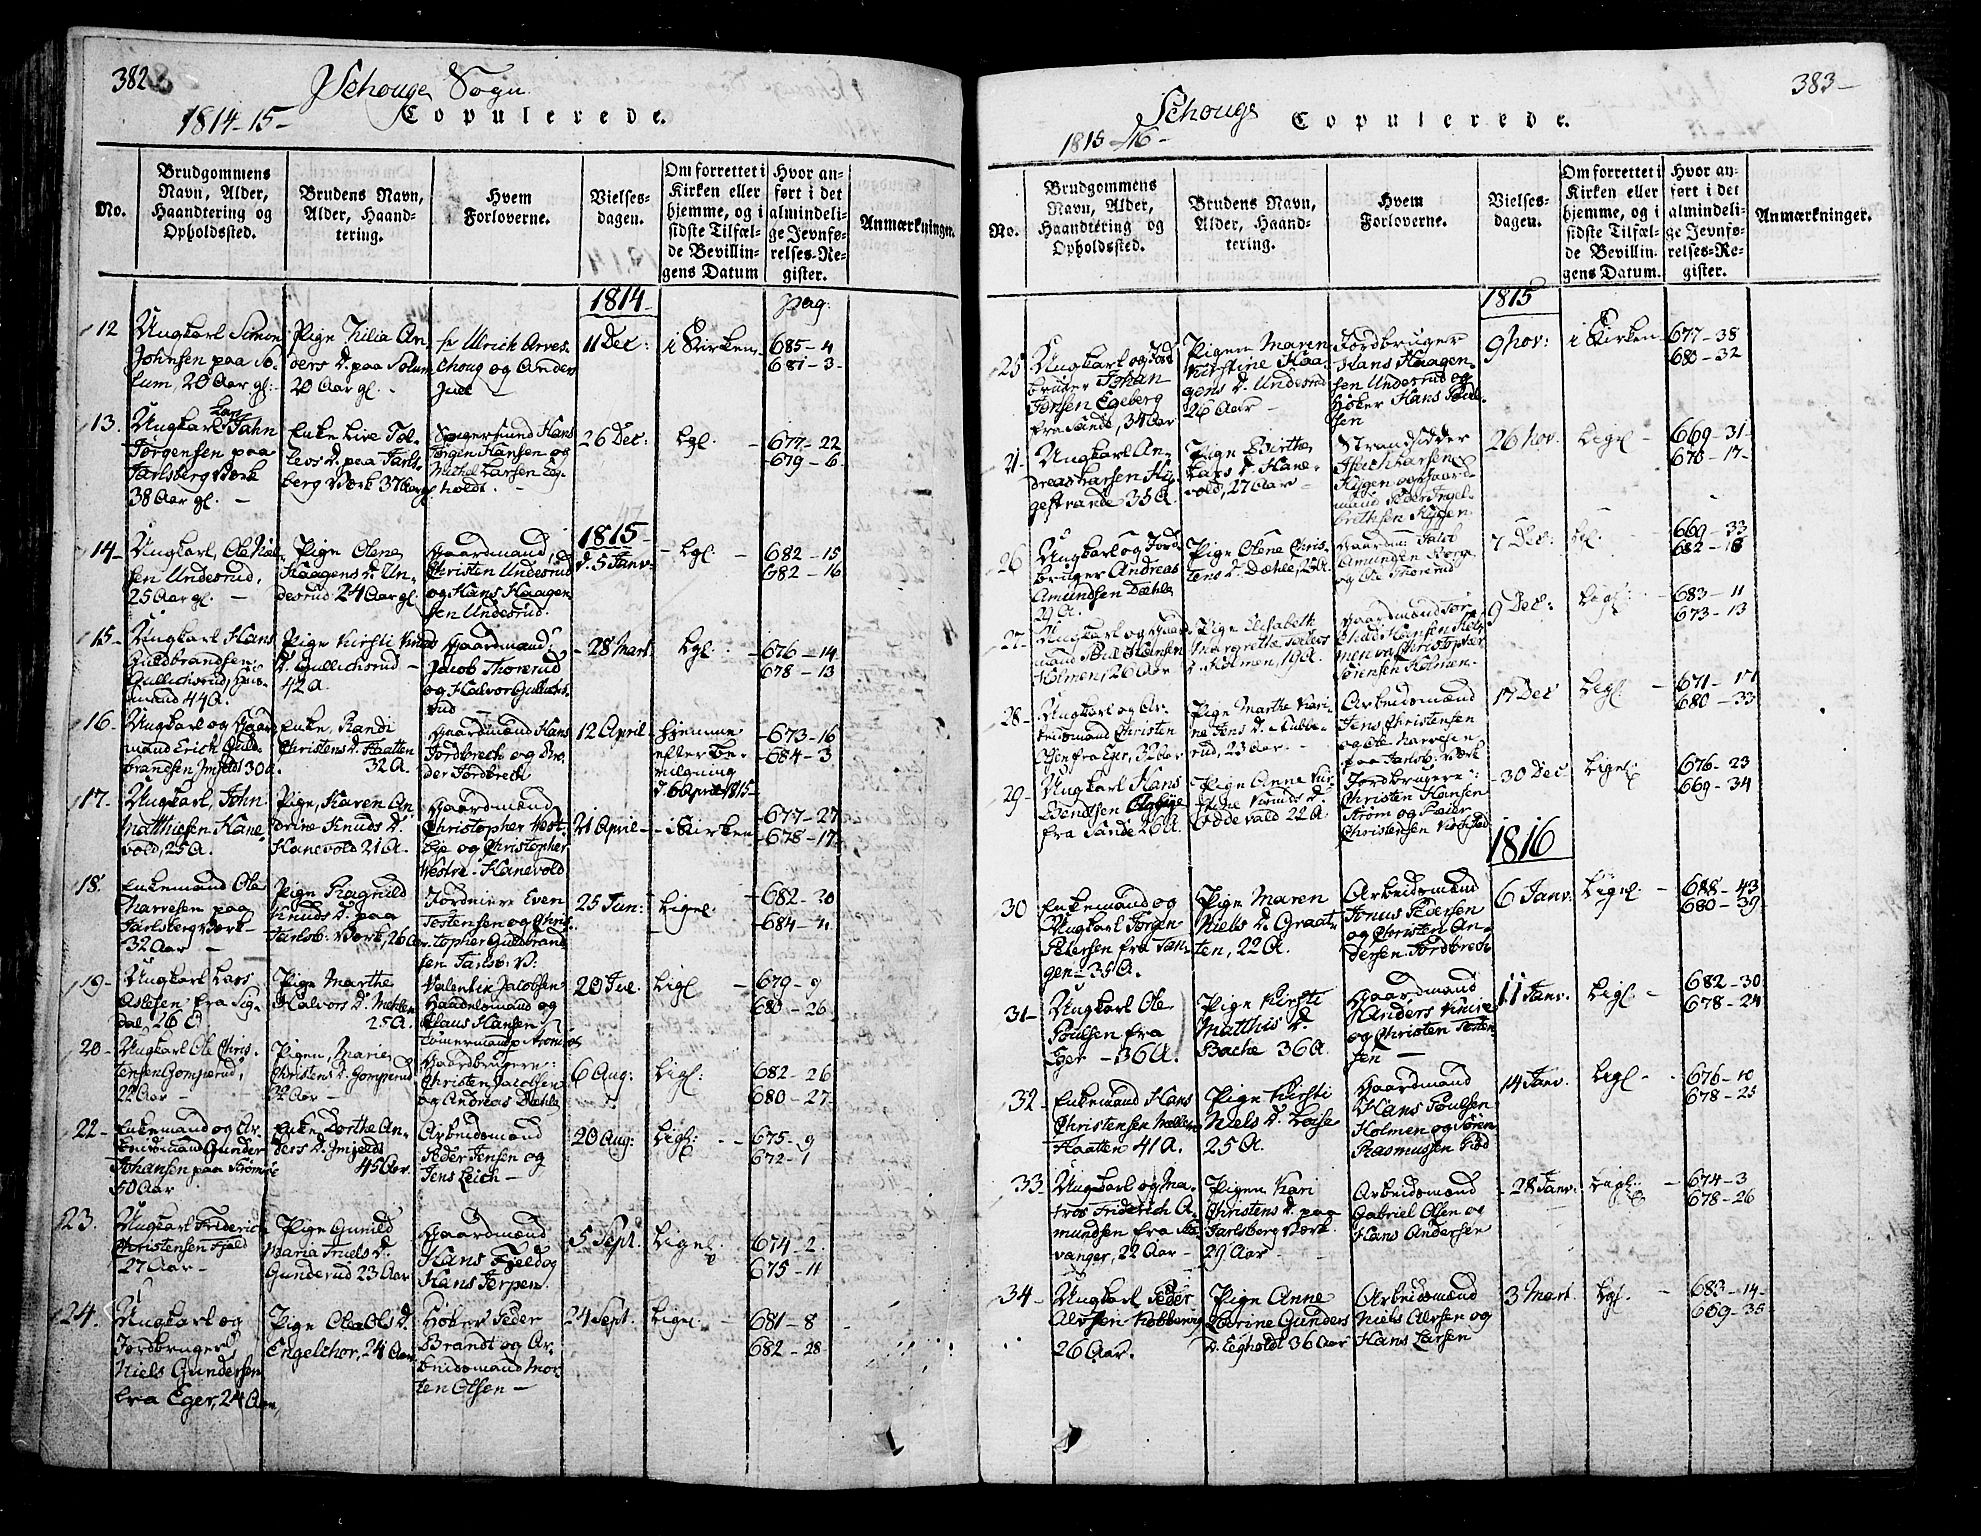 382
Schouger Sogn
1814-15-
Copulerede.
No.
Brudgommens
Navn, Alder,
Haandtering og
Opholdssted.
Brudens Navn,
Alder, Haand-
tering.
Hvem
Forloverne.
Vielses-
dagen.
Om forrettet i
Kirken eller
hjemme, og i
sidste Tilfæl-
de Bevillin-
gens Datum
Hvor an-
ført i det
almindeli-
ge Jevnfø-
relses-Re-
gister.
Anmærkninger.
1814
pag.
12
Ungkarl Simon
Johnsen paa So-
lum, 20 Aar gl:
Pige Kilia An-
ders D. paa Solum
20 Aar gl.
hr Ulrich Arves-
choug og Anders
11 Dec:
i Kirken
685-4
681-3
13.
Ungkarl Lars John
Jørgensen paa
Jarlsberg Værk
38 Aar gl.
Enke Live Tol-
levs D. paa Jarls-
berg Værk 37 Aar gl
Hans
Jørgen Hansen og
Michel Larsen Eg-
holdt.
26 Dec:
Lgl.
677-22
679-6
1815
14-
Ungkarl, Ole Niel-
sen Undesrud,
25 Aar gl.
Pige Olene
Haagens D. Un-
desrud 24 Aar gl
Gaardmænd,
Christen Undesrud
og Hans Haagen
sen Undesrud.
d. 5 Janv.
Lgl.
682-15
682-16
15-
Ungkarl Hans
Guldbrandsen
Gullichsrud, Huus-
mand 44 A.
Pige Kirsti Knuds
D. Gullichsrud
42 A.
Gaardmænd
Jacob Thorerud
og Halvor Gullichs
rud
28 Mart.
Lgl.
676-14
678-13
16-
Ungkarl og Gaard
mand Erich Guld-
brandsen Imjeldt 30 A.
Enke, Randi
Christens D. Haatten
32 A.
Gaardmænd Hans
Jordbrech og An-
ders Jordbrech
12 April
Hjemme
efter Be-
vilgning
d. 6 April 1815
673-16
684-3
17-
Ungkarl, John
Matthiesen Hane-
vold, 25 A.
Pige, Karen An-
drine Knuds D.
Hanevold 21 A.
Gaardmænd
Christopher Vest-
bye og Christopher
Vestre-Hanevold
21 April
i Kirken
677-27
678-17
18.
Enkemand Ole
Narvesen paa
Jarlsberg Værk
32 Aar
Pige Ragnild
Knuds D. paa
Jarlsb: Værk, 26 Aar
Jordeiere Even
Tostensen og Chris-
topher Guldbrand
sen Jarlsb. V:
25 Jun:
Ligel.
682-20
684-4
19-
Ungkarl Lars
Aslesen fra Sig-
dal 26 A
Pige Marthe
Halvors D. Møllen
25 A.
Valentin Jacobsen
Haandtsmand og
Claus Hansen
Tømmermand p Strømsøe
20 Jul.
Ligl
679-9
680-26
20-
Ungkarl Ole Chris-
tensen Gomperud,
22 Aar
Pigen, Marie
Christens D. Gomperud
22 Aar
Gaardbrugere:
Christen Jacobsen
og Andreas Dæhle
6 Aug:
Ligl.
682-26
680-27
22-
Enkemand og Ar-
beidsmand Gunder
Johansen paa Strømsøe
50 Aar
Enke, Dorthe An-
ders D. Imjeldt
45 Aar
Arbeidsmænd
Peder Jensen og
Jens Leich
20 Aug:
Ligl:
675-9
672-1
23.
Ungkarl Frideric
Christensen Fjeld
27 Aar
Pige Gunild
Maria Truels D.
Gunderud 23 Aar
Gaardmænd
Hans Fjeld og
Hans Jerpen.
5 Sept.
Ligel
674-2
675-11
24.
Ungkarl og
Jordbruger
Niels Gundersen
fra Eger, 24 Aar,
Pige Olea Ols D.
Engelchor, 24 Aar
Høker Peder
Brandt og Ar-
beidsmand Mor-
ten Olsen
24 Sept.
Ligel
681-8
682-28
383-
Schouge
1815-16-
Copulerede.
No.
Brudgommens
Navn, Alder,
Haandtering og
Opholdssted.
Brudens Navn,
Alder, Haand-
tering.
Hvem
Forloverne.
Vielses-
dagen.
Om forrettet i
Kirken eller
hjemme, og i
sidste Tilfæl-
de Bevillin-
gens Datum.
Hvor an-
ført i det
almindeli-
ge Jevnfø-
relses-Re-
gister.
Anmærkninger.
1815
25
Ungkarl og Jord
bruger Johan
Jensen Egeberg
fra Sande, 34 Aar
Pigen Maren
Kirstine Haa-
gens D. Undesrud
26 Aar
Jordbruger
Hans Haagen-
sen Undesrud og
Høker Hans Peder-
sen
9 Nov:
i Kirken
677-38
680-32
21-
Ungkarl An-
dreas Larsen Hy-
gestrande 35 A
Pige Birthe
Lars D. Hane-
vold, 27 Aar
Strandsidder
Isach Larsen
Hygen og Gaard-
mand Peder Ingel-
brethsen Hygen.
26 Nov.
Ligel
669-31
678-17
26
Ungkarl og Jord-
bruger Andreas
Amundsen Dæhle
29 A.
Pige Olene Chris-
tens D. Dæhle, 26 A
Gaardm: Jacob
Amundsen Berge
og Ole Thorerud
7 Dec:
Lgl.
669-33
682-18
27-
Ungkarl og Gaard
mand Poul Hansen
Holmen, 26 Aar
Pige Elisabeth
Margrethe Jacobs
D. Holmen, 19 A.
Gaardmænd Jør-
Hansen Hol-
men og Christopher
Sørensen Holmen.
9 Dec:
Ligl.
683-11
673-13
28-
Ungkarl og Ar-
beidsmand Christen
Olsen fra Eger, 32 Aar
Pige Marthe Kari-
ne Jens D. Kubbe-
rud, 23 Aar.
Arbeidsmænd
Jens Christensen
og Ole Narvesen
paa Jarlsb: Værk
17 Dec
Ligl.
671-17
680-33
29-
Ungkarl Hans
Bendtsen Aghøye
fra Sande 26 A.
Pige Anne Kir-
stine Knuds D.
Oddevald 22 A.
Jordbrugere:
Christen Hansen
Strøm og Peder
Christensen Kiøkstad
30 Dec
Ligel.
676-23
669-34
1816
30
Enkemand og
Ungkarl Jørgen
Petersen fra Tan-
gen-35 A.
Pige Maren
Niels D. Graat-
ten, 22 A.
Arbeidsmænd
Jonus Pedersen
og Christen An-
dersen Jordbrech
6 Janv:
Ligel.
688-43
680-39
31-
Ungkarl Ole
Poulsen fra
Eger-36 A.
Pige Kirsti
Matthis D.
Bache 36 A.
Gaardmænd
Anders Knive
og Christen Tosten-
sen
11 Janv.
Ligl.
682-30
678-24
32-
Enkemand Hans
Christensen Møllen
Haatten 41 A.
Pige Kirsti
Niels D. Leise
25 A.
Gaardmænd
Hans Poulsen
Holmen og Søren
Rasmussen Fød
14 Janv.
Ligl
676-10
678-25
33
Ungkarl og Ma-
tros Friderich A-
mundsen fra Sta-
vanger, 22 Aar
Pigen Kari
Christens D. paa
Jarlsberg Værk
29 Aar
Arbeidsmænd
Gabriel Olsen og
Hans Andersen
28 Janv:
Ligl:
674-3
678-26
34-
Ungkarl Peder
Alvsen Kobbervig
26 Aar.
Pige Anne
Cathrine Gunders
D. Egholdt 36 Aar
Arbeidsmænd
Niels Alvsen og
Hans Larsen
3 Mart
Lgl.
683-14
669-35